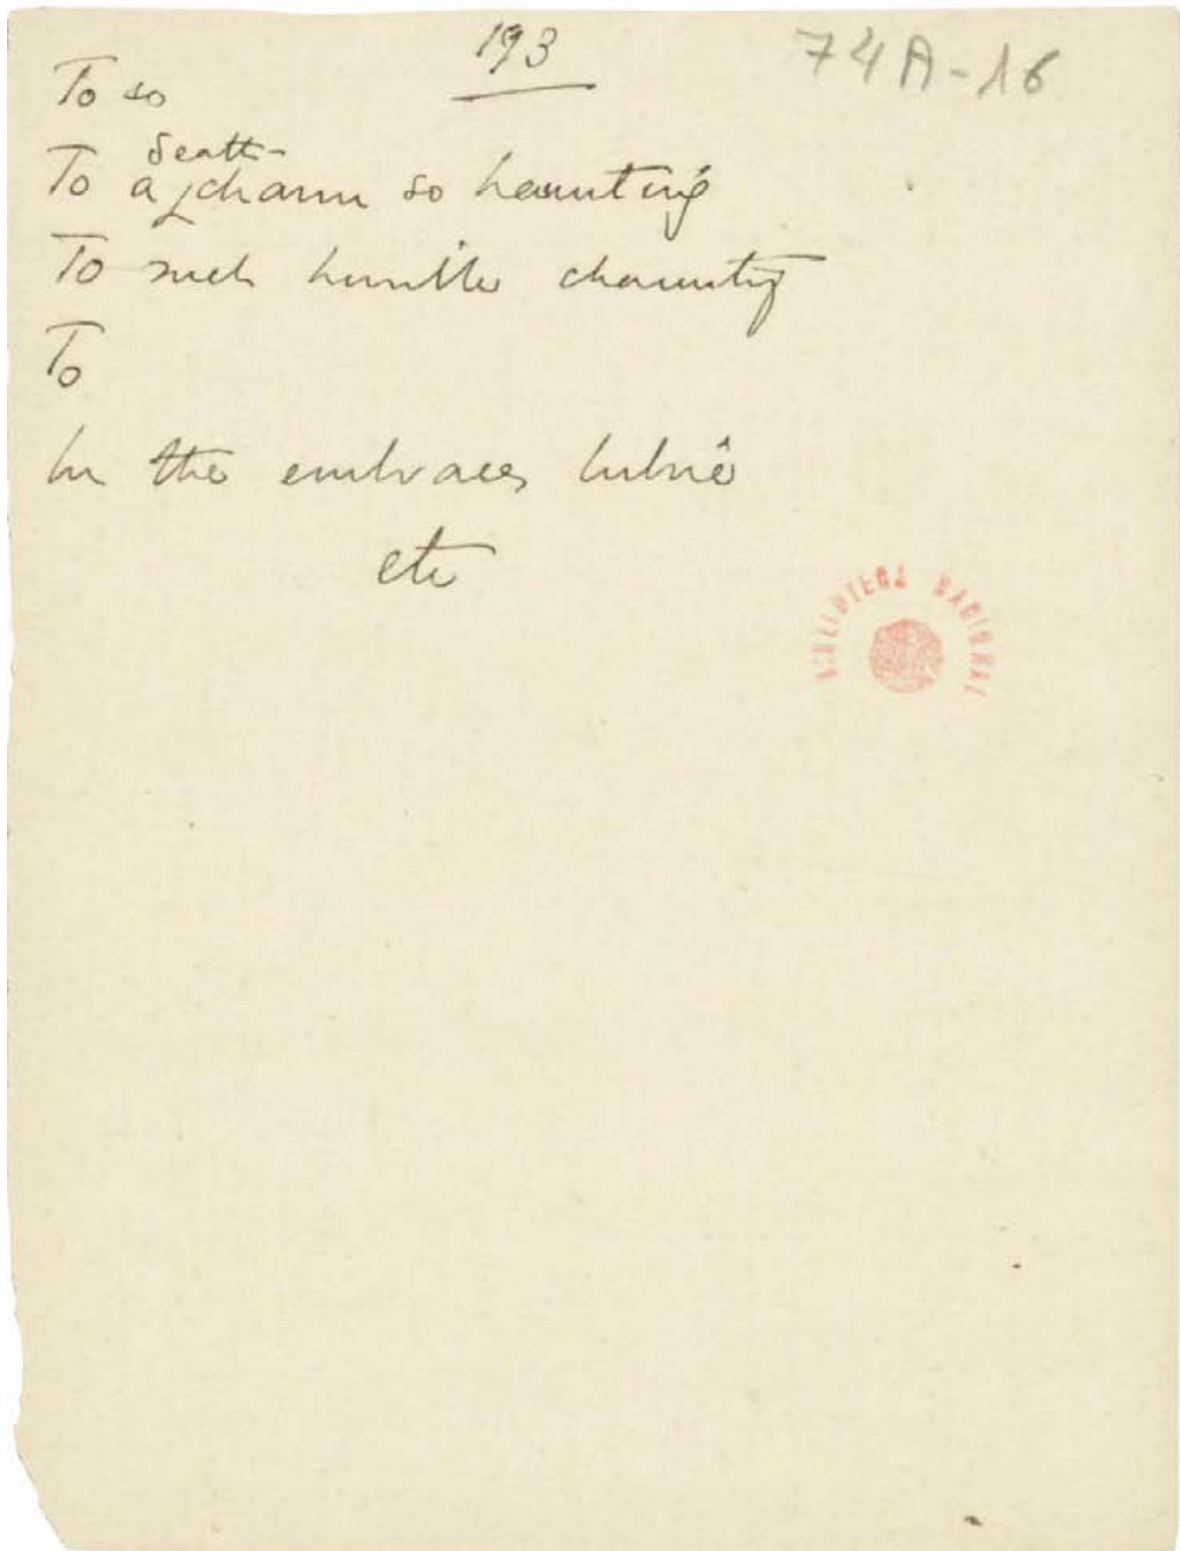 193
74A-16
To so
death-
To a charm so haunting
To such humble chaunting
To
In the embraces
etc
BIBLIOTECA NACIONAL